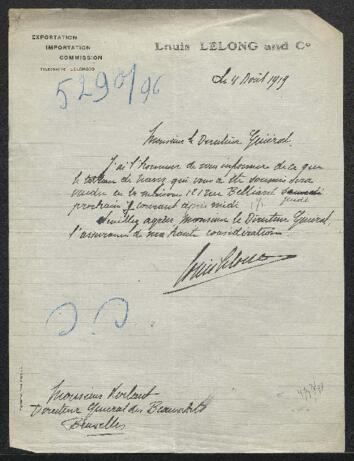 EXPORTATION
IMPORTATION
COMMISSION
Louis LELONG and Co
5290/96
Le 4 Août 1919
Monsieur le Directeur Général
J'ai l'honneur de vous informer de ce que
le tableau de qui vous a été soumis sera
vendu en la maison 121 rue Belliard samedi
prochain 7 courant après midi
jeudi
Veuillez agréer Monsieur le Directeur Général
l'assurance de ma haute considération
Louis Lelong
Monsieur Verlant
Directeur Général des Beaux Arts
Bruxelles